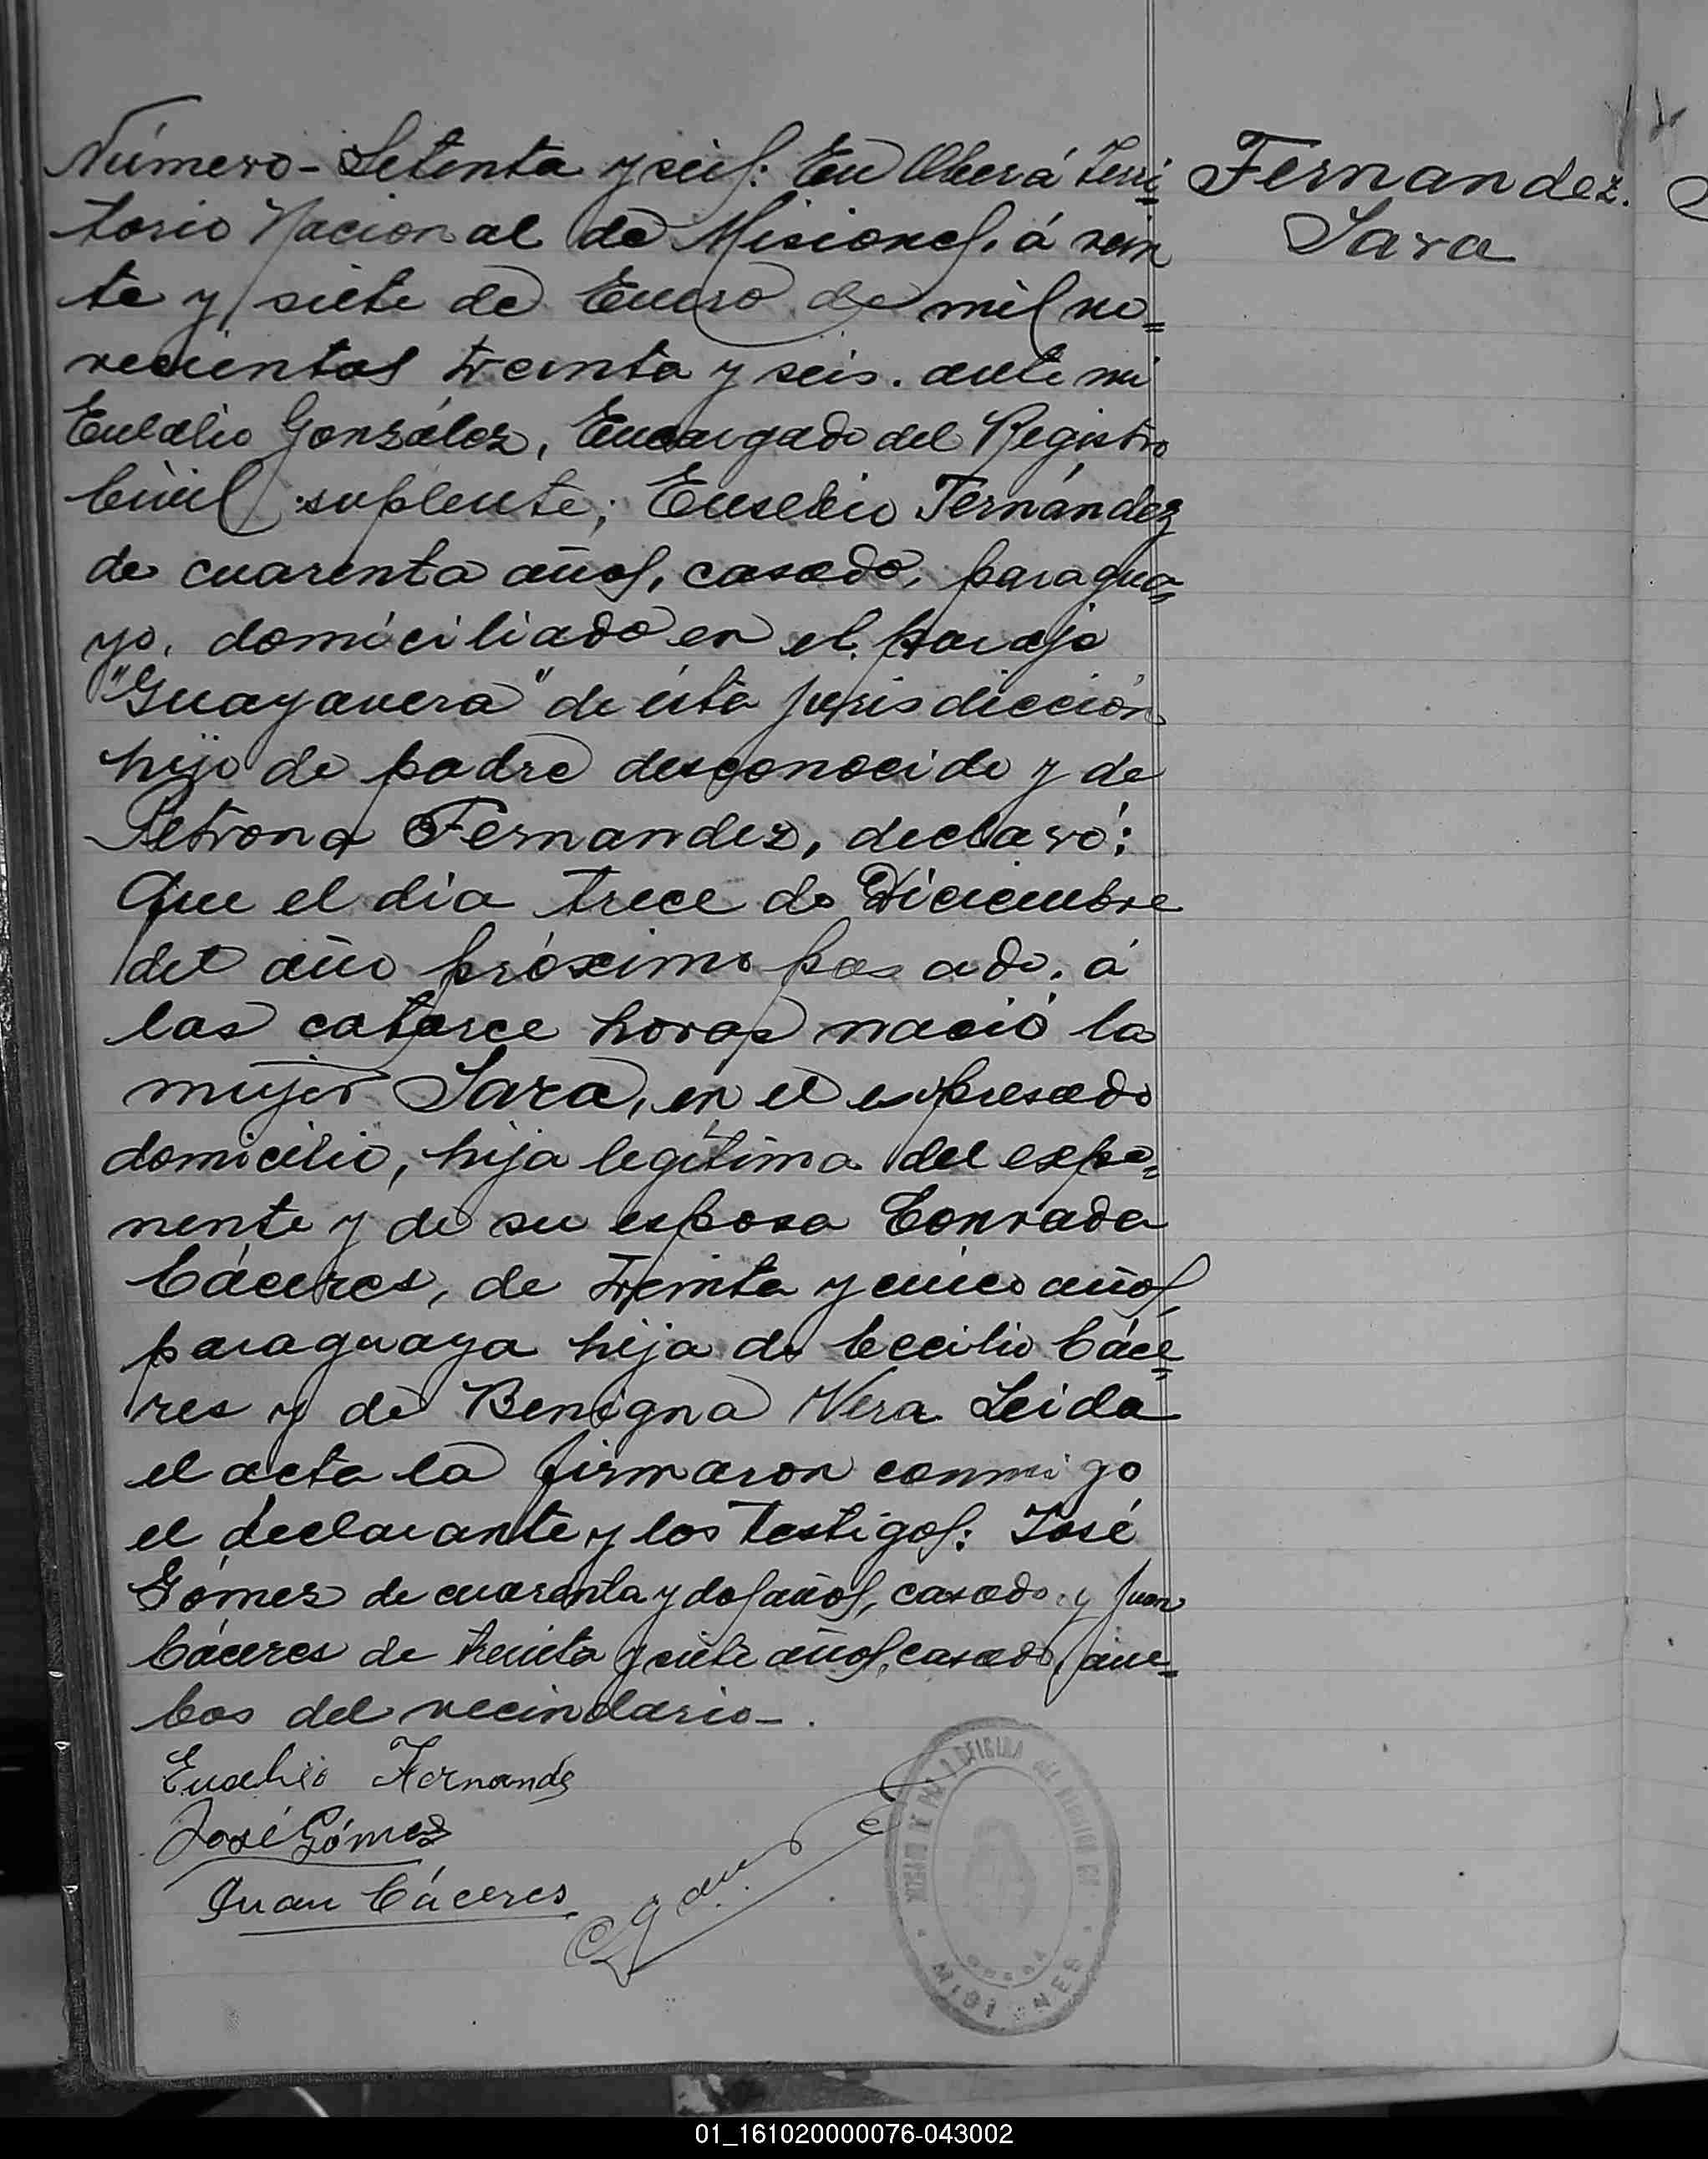 Número - Setenta y seis: En Oberá Terri=
torio Nacional de Misiones, á vein
te y siete de Enero de mil no=
vecientos treinta y seis. ante mi
Eulalio González, Encargado del Registro
Civil suplente; Eusebio Fernández
de cuarenta años, casado, paragua=
yo, domiciliado en el paraje
"Guayavera" de ésta jurisdicción
hijo de padre desconocido y de
Petrona Fernandez, declaró:
Que el dia trece de Diciembre
del año próximo pasado, á
las catorce horas nació la
mujer Sara, en el expresado
domicilio, hija legítima del expo=
nente y de su esposa Conrada
Cáceres, de treinta y cinco años,
paraguaya hija de Cecilio Cáce=
res y de Benigna Vera. Leida
el acta la firmaron conmigo
el declarante y los testigos: José
Gómez de cuarenta y dos años, casado, y Juan
Cáceres de treinta y siete años, casado, am=
bos del vecindario-.
Fernandez.
Sara
Fernandez
José Gómez
Juan Cáceres
OFICINA DEL REGISTRO
MISIONES
01_161020000076-043002